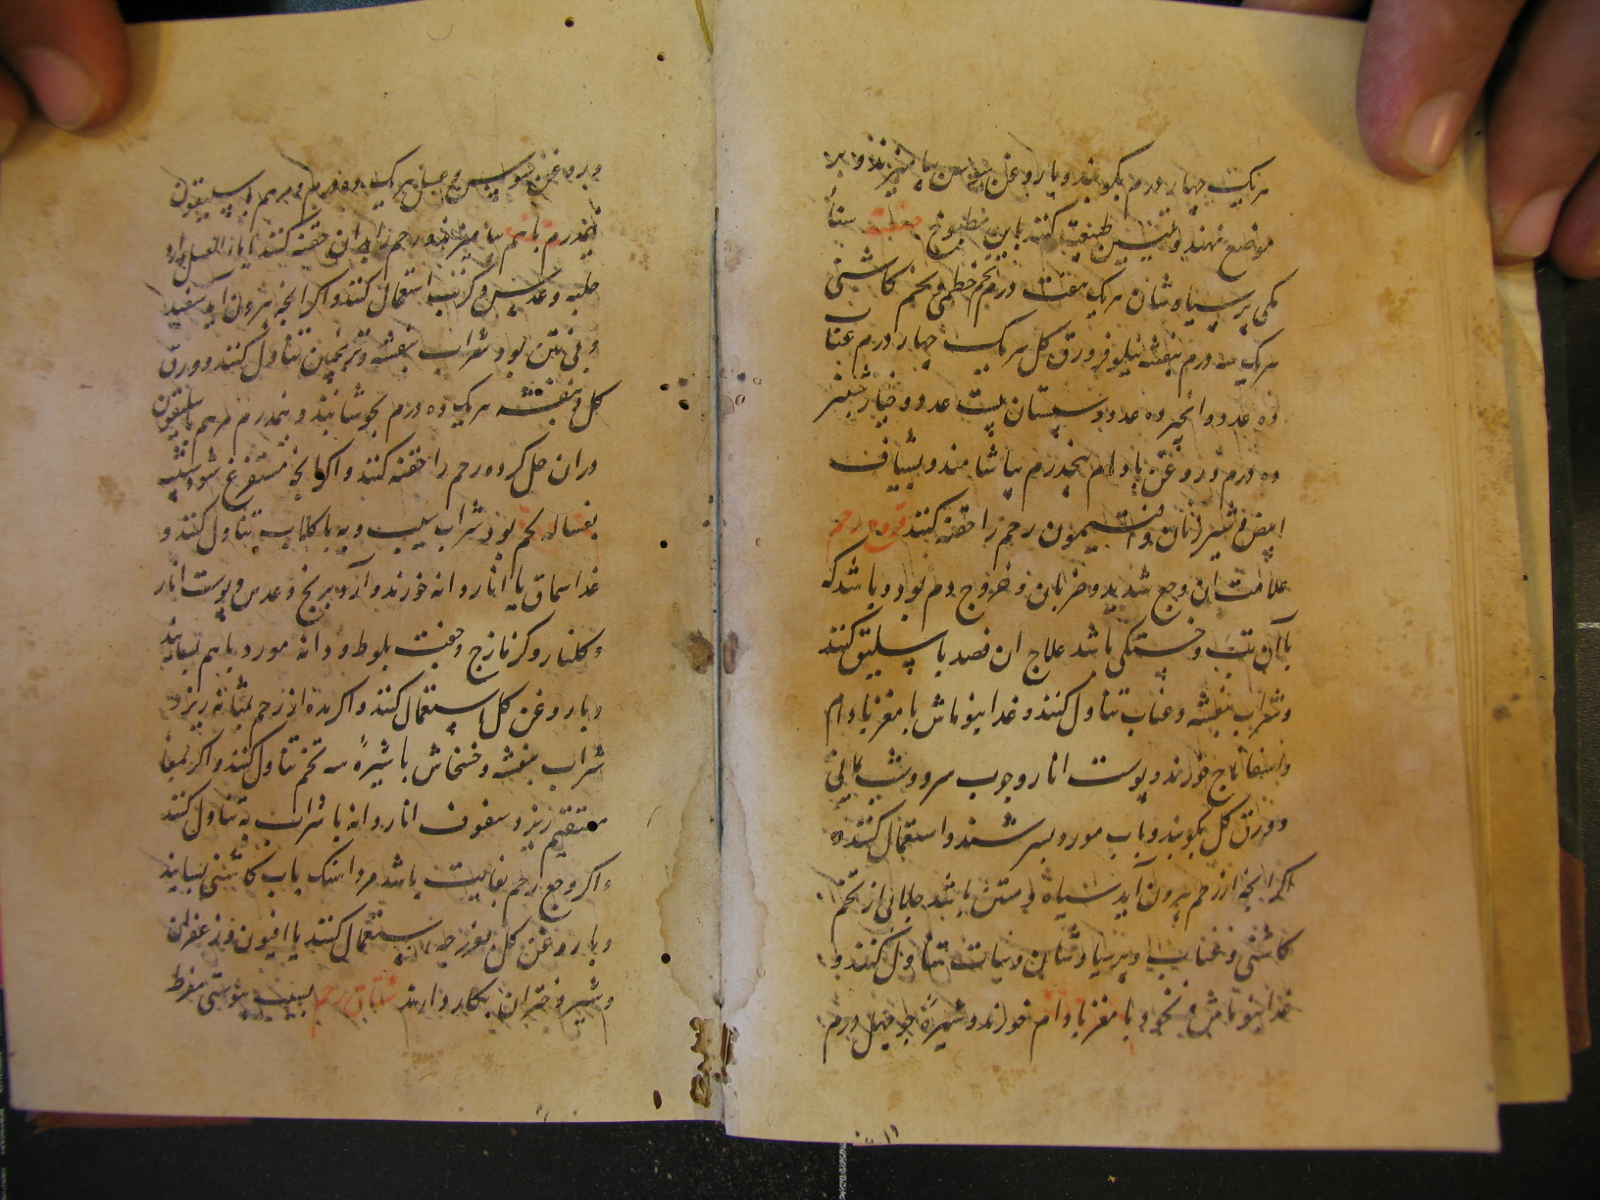 هریک چهار درم بکوبند و با روغن سوسن بیامیزند و بر
موضع نهند و تلیین طبیعت کنند باین مطبوخ صفته سنا
مکی پرسیاوشان هریک هفت درم تخم خطمی و تخم کاسنی
هریک سه درم بنفشه نیلوفر ورق گل هریک چهار درم عناب
ده عدد و انجیر ده عدد و سپستان بیست عدد و خیارشنبر
ده درم و روغن بادام پنجدرم بیاشامند و بشیاف
ابیض و شیر زنان و افیون رحم را حقنه کنند قروح رحم
علامت ان وجع شدید و ضربان و خروج دم بود و باشد که
با آن تب و خستگی باشد علاج ان فصد باسلیق کنند
و شراب بنفشه و عناب تناول کنند و غذا بنوماش با مغز بادام
و اسفاناج خورند و پوست انار و چوب سرو و شب یمانی
و ورق گل بکوبند و باب مورد بسرشند و استعمال کنند و
اگر انچه از رحم بیرون آید سیاه و منتن باشد جلابی از تخم
کاسنی و عناب و پرسیاوشان و نبات تناول کنند و
غذا بنوماش و نخود با مغز بادام خورند و شیره جو چهل درم
و روغن سوسن و عسل هریک ده درم و مرهم باسلیقون
پنجدرم باهم بیامیزند و رحم را بدان حقنه کنند یا بماء العسل و ارد
حلبه و عدس و کرنب استعمال کنند و اگر انچه بیرون اید سفید
و بی نتن بود شراب بنفشه و ترنجبین تناول کنند و ورق
گل و بنفشه هریک ده درم بجوشانند و پنجدرم مرهم باسلیقون
دران حل کرده رحم را حقنه کنند و اگر انچه مستفرغ شود شبیه
بغساله لحم بود شراب سیب و به با گلاب تناول کنند و
غذا سماق یا اناردانه خورند و آرد برنج و عدس و پوست انار
و گلنار و گزمازج و جفت بلوط و دانه مورد باهم بسایند
و با روغن گل استعمال کنند و اگر مده از رحم بمثانه ریزد
شراب بنفشه و خشخاش با شیره سه تخم تناول کنند و اگر بمعاء
مستقیم ریزد سفوف اناردانه با شراب به تناول کنند
و اگر وجع رحم بغایت باشد مرداسنک باب کاسنی بسایند
و با روغن گل بفرزجه استعمال کنند یا افیون و زعفران
و شیر دختران بکار دارند شقاق رحم بسبب یبوستی مفرط